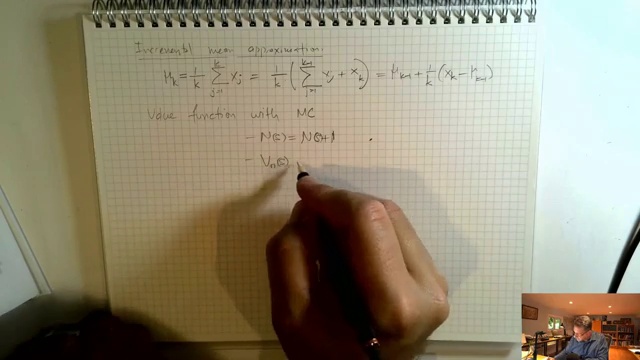 Incremental mean approximation:
μ_k = 1/k ∑_{j=1}^{k} x_j = 1/k ( ∑_{j=1}^{k-1} x_j + x_k ) = μ_{k-1} + 1/k (x_k − μ_{k-1})
Value function with MC
- N(s) = N(s)+1
- V_π(s)